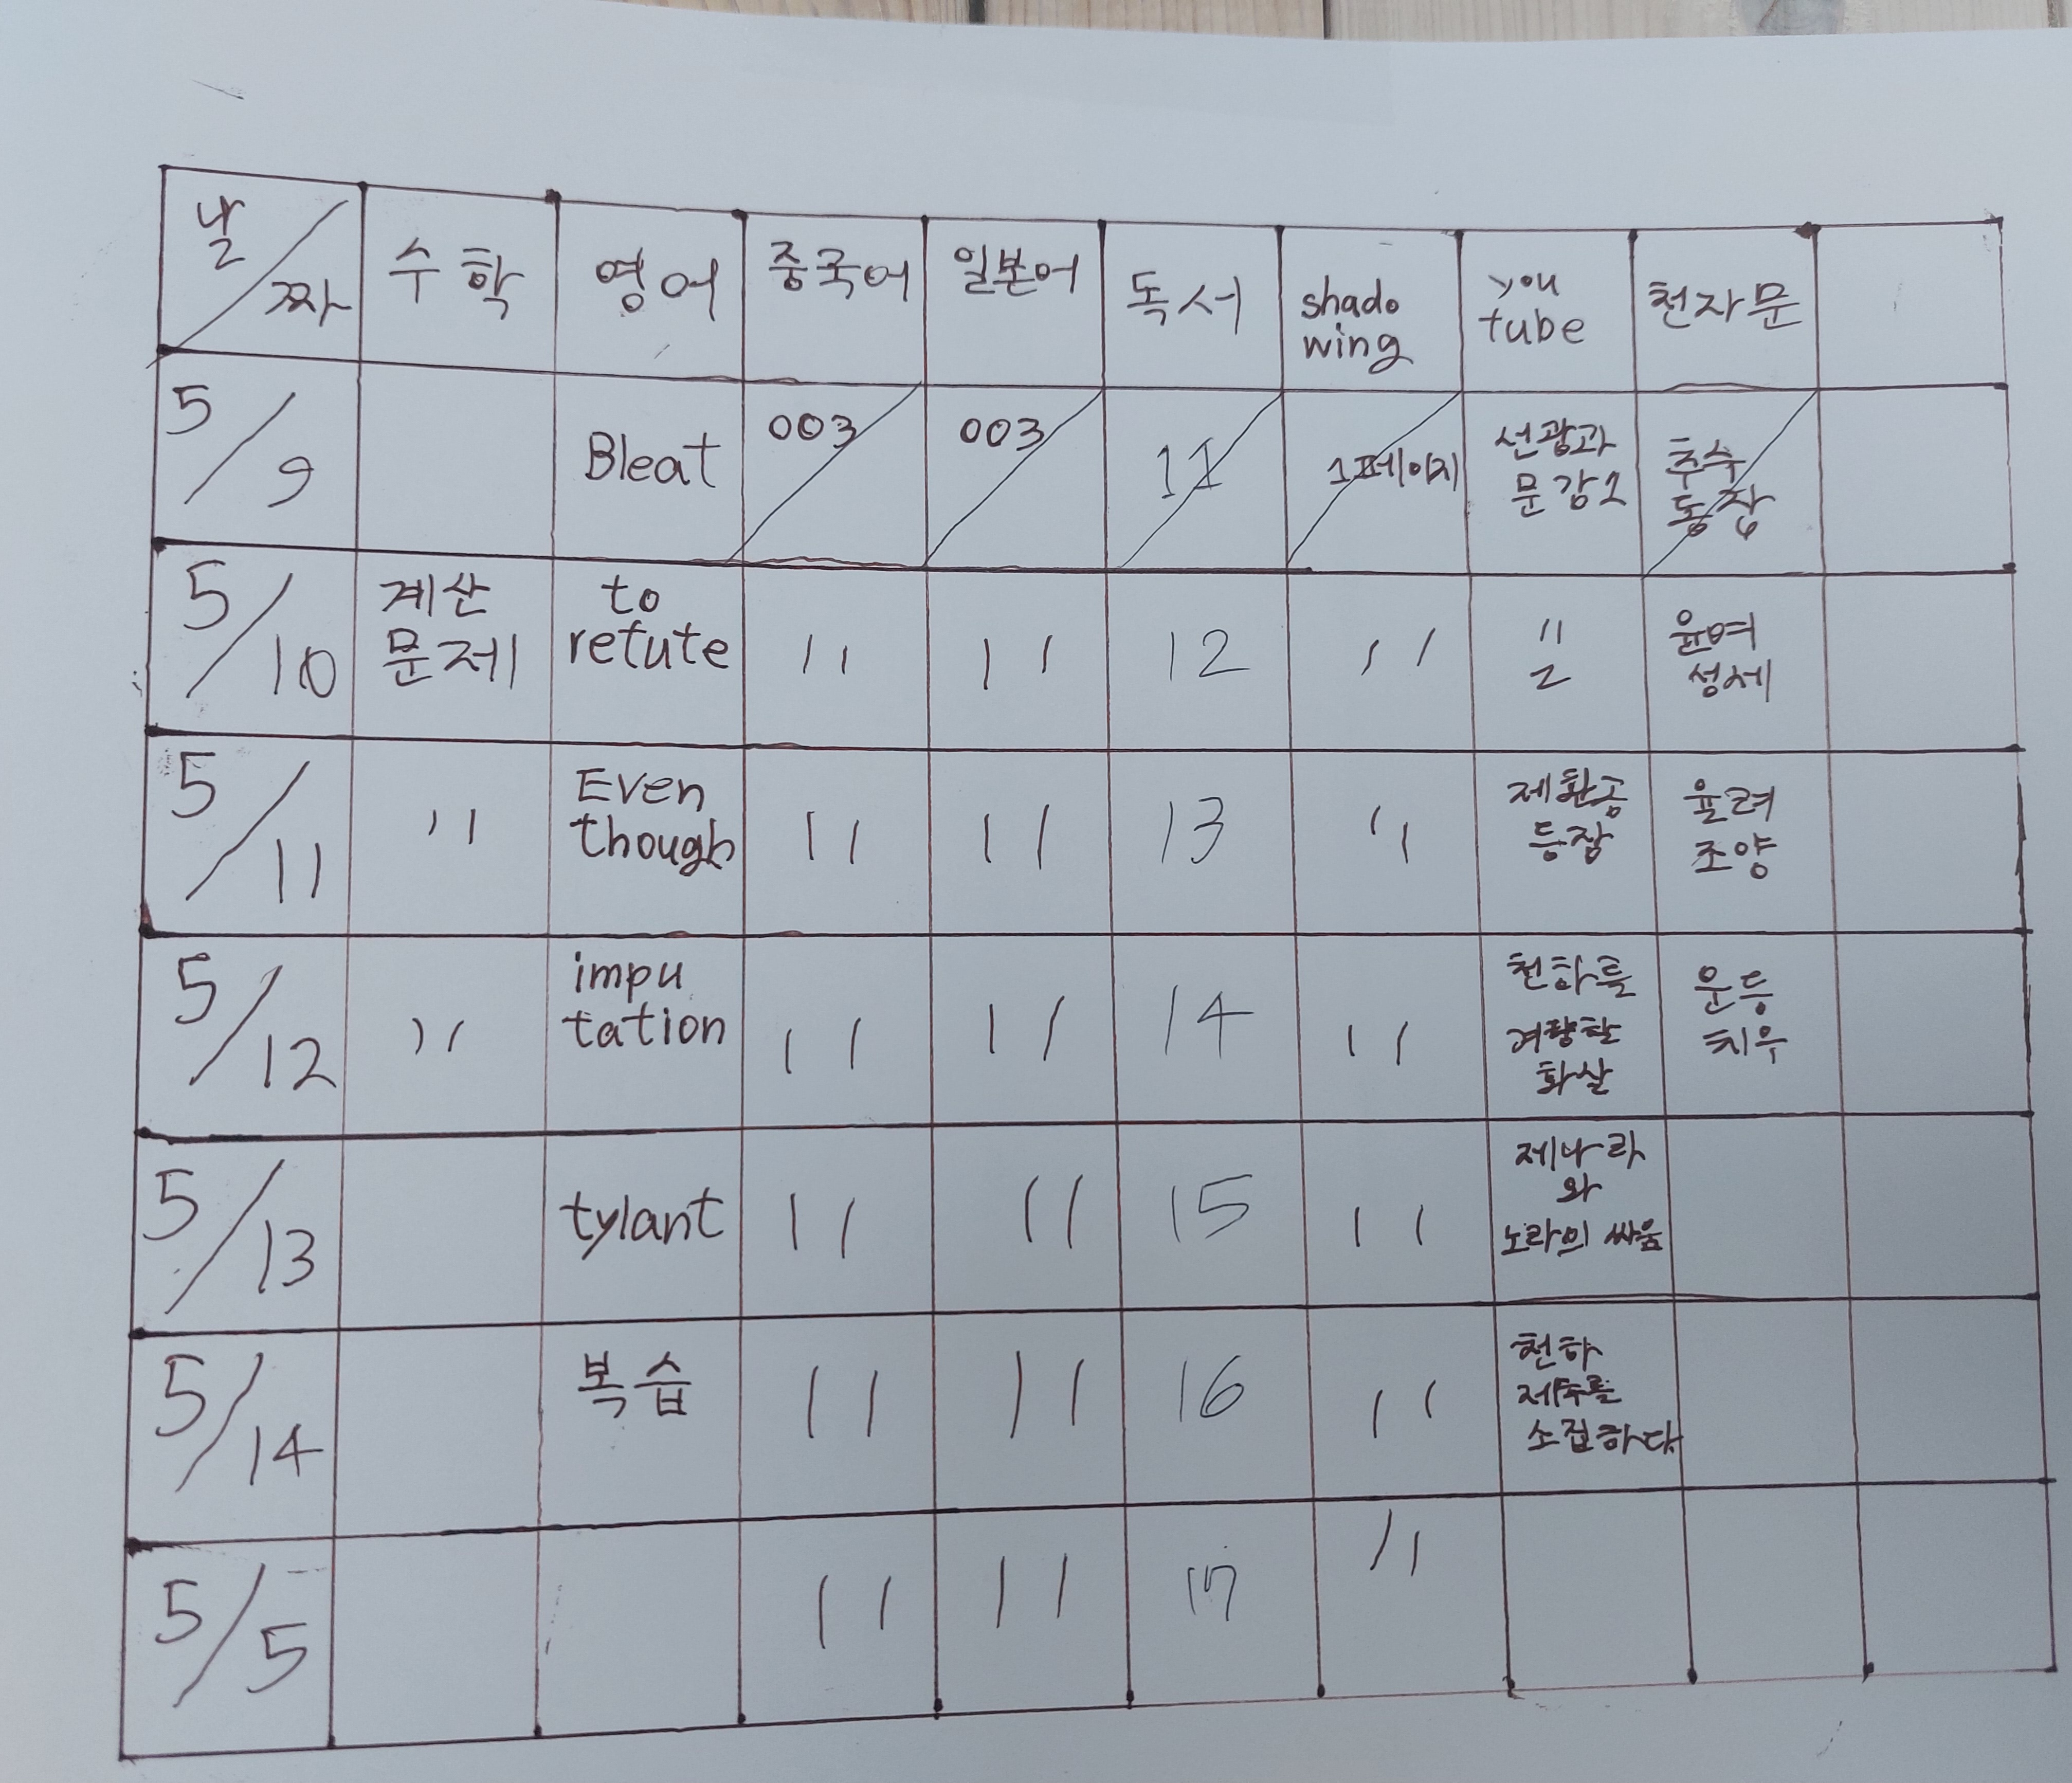 날/짜 수학 영어 중국어 일본어 독서 shado wing you tube 천자문
5/9 Bleat 003 003 11 1페이지 선광과 문강1 추수 동장
5/10 계산 문제 to refute 11 11 12 11 11 2 윤여 성세
5/11 11 Even though 11 11 13 11 제환공 등장 율려 조양
5/12 11 impu tation 11 11 14 11 천하를 겨냥한 화살 운등 치우
5/13 tylant 11 11 15 11 제나라 와 노라의 싸움
5/14 복습 11 11 16 11 천하 제후를 소집하다
5/5 11 11 17 11